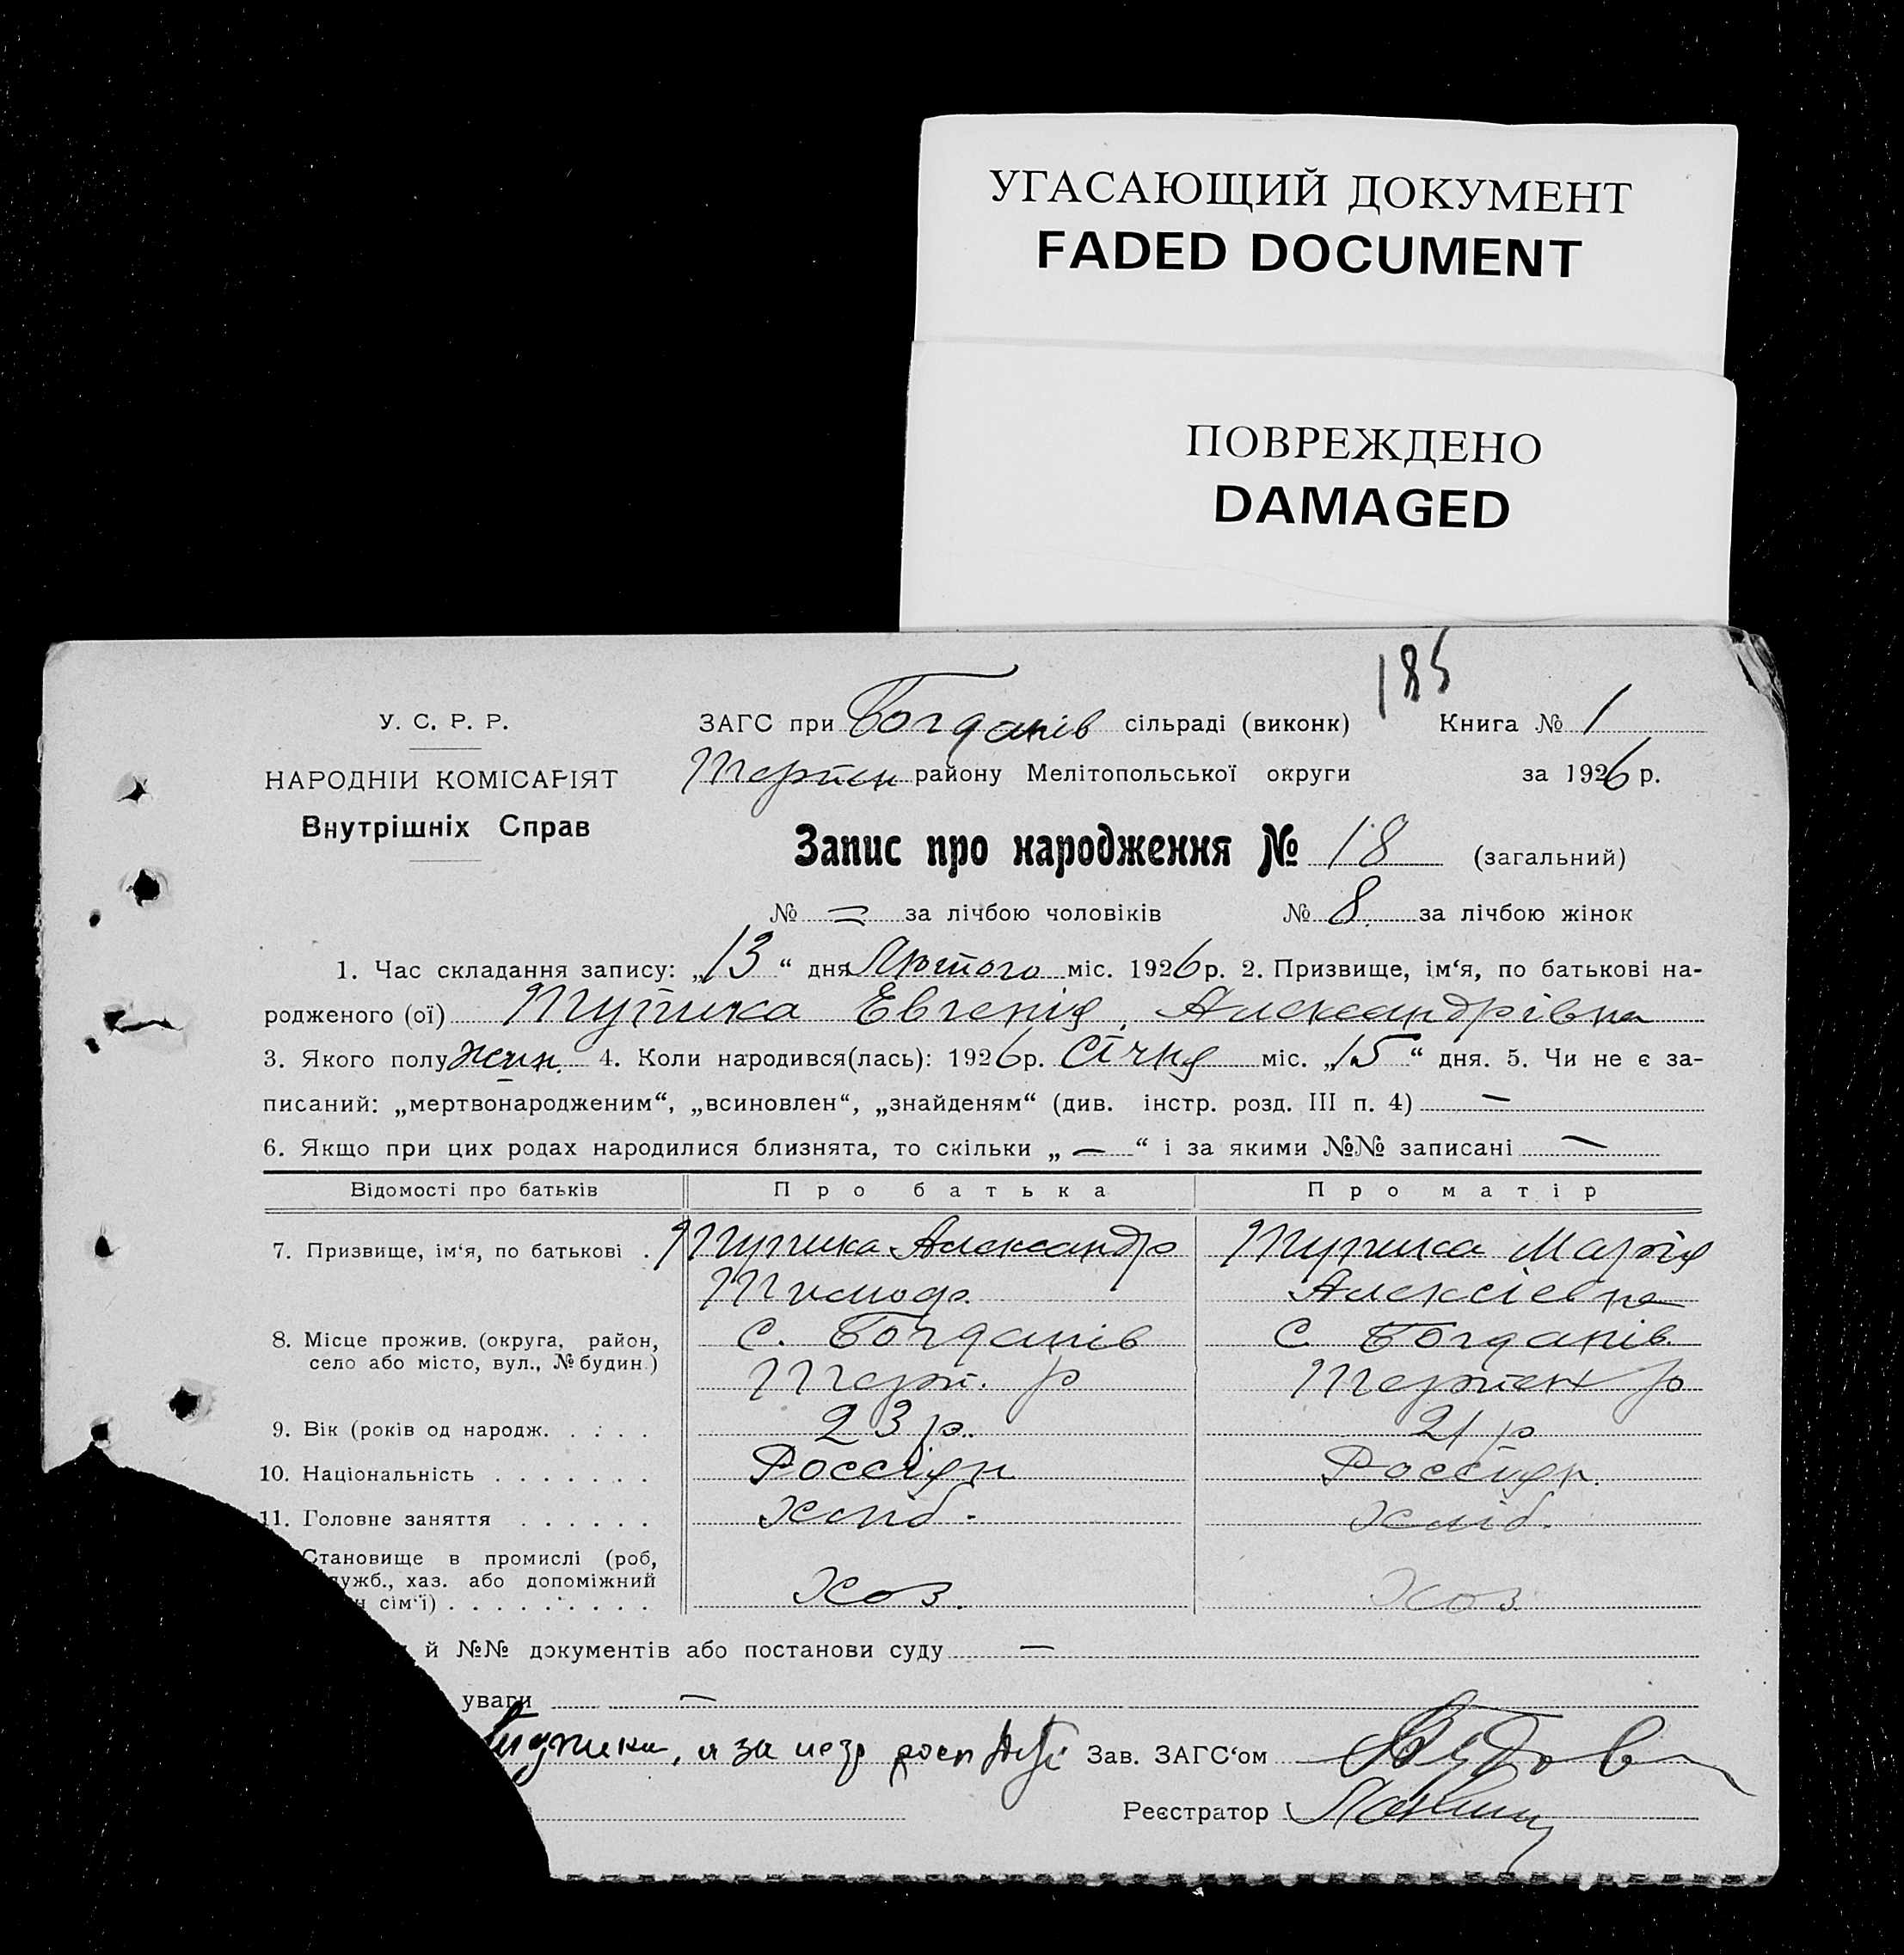 УГАСАЮЩИЙ ДОКУМЕНТ
FADED DOCUMENT
ПОВРЕЖДЕНО
DAMAGED
185
У. С. Р. Р.
НАРОДНІЙ КОМІСАРІЯТ
Внутрішніх Справ
ЗАГС при Богданів сільраді (виконк) Книга № 1
Терпен району Мелітопольської округи за 1926 р.
Запис про народження № 18 (загальний)
№ — за лічбою чоловіків № 8 за лічбою жінок
1. Час складання запису: „13“ дня Лютого міс. 1926 р. 2. Призвище, ім‘я, по батькові на-
родженого (ої) Тупика Евгенія, Александрівна
3. Якого полу жин. 4. Коли народився(лась): 1926 р. Січня міс. „15“ дня. 5. Чи не є за-
писаний: „мертвонародженим“, „всиновлен“, „знайденям“ (див. інстр. розд. III п. 4) —
6. Якщо при цих родах народилися близнята, то скільки „—“ і за якими №№ записані —
Відомості про батьків Про батька Про матір
7. Призвище, ім‘я, по батькові . Тупика Александр Тупика Марія
Тимоф. Алексіевна
8. Місце прожив. (округа, район, с. Богданів с. Богданів.
село або місто, вул., № будин.) Терп. р Терпен р
9. Вік (років од народж. . . . . 23 р. 21 р
10. Національність . . . . . . . Россіян Россіян.
11. Головне заняття . . . . . . Хліб. Хліб.
Становище в промислі (роб,
ужб., хаз. або допоміжний
н сім‘ї) . . . . . . . . . Хоз. Хоз
й №№ документів або постанови суду —
уваги —
и за Зав. ЗАГС‘ом
Реєстратор